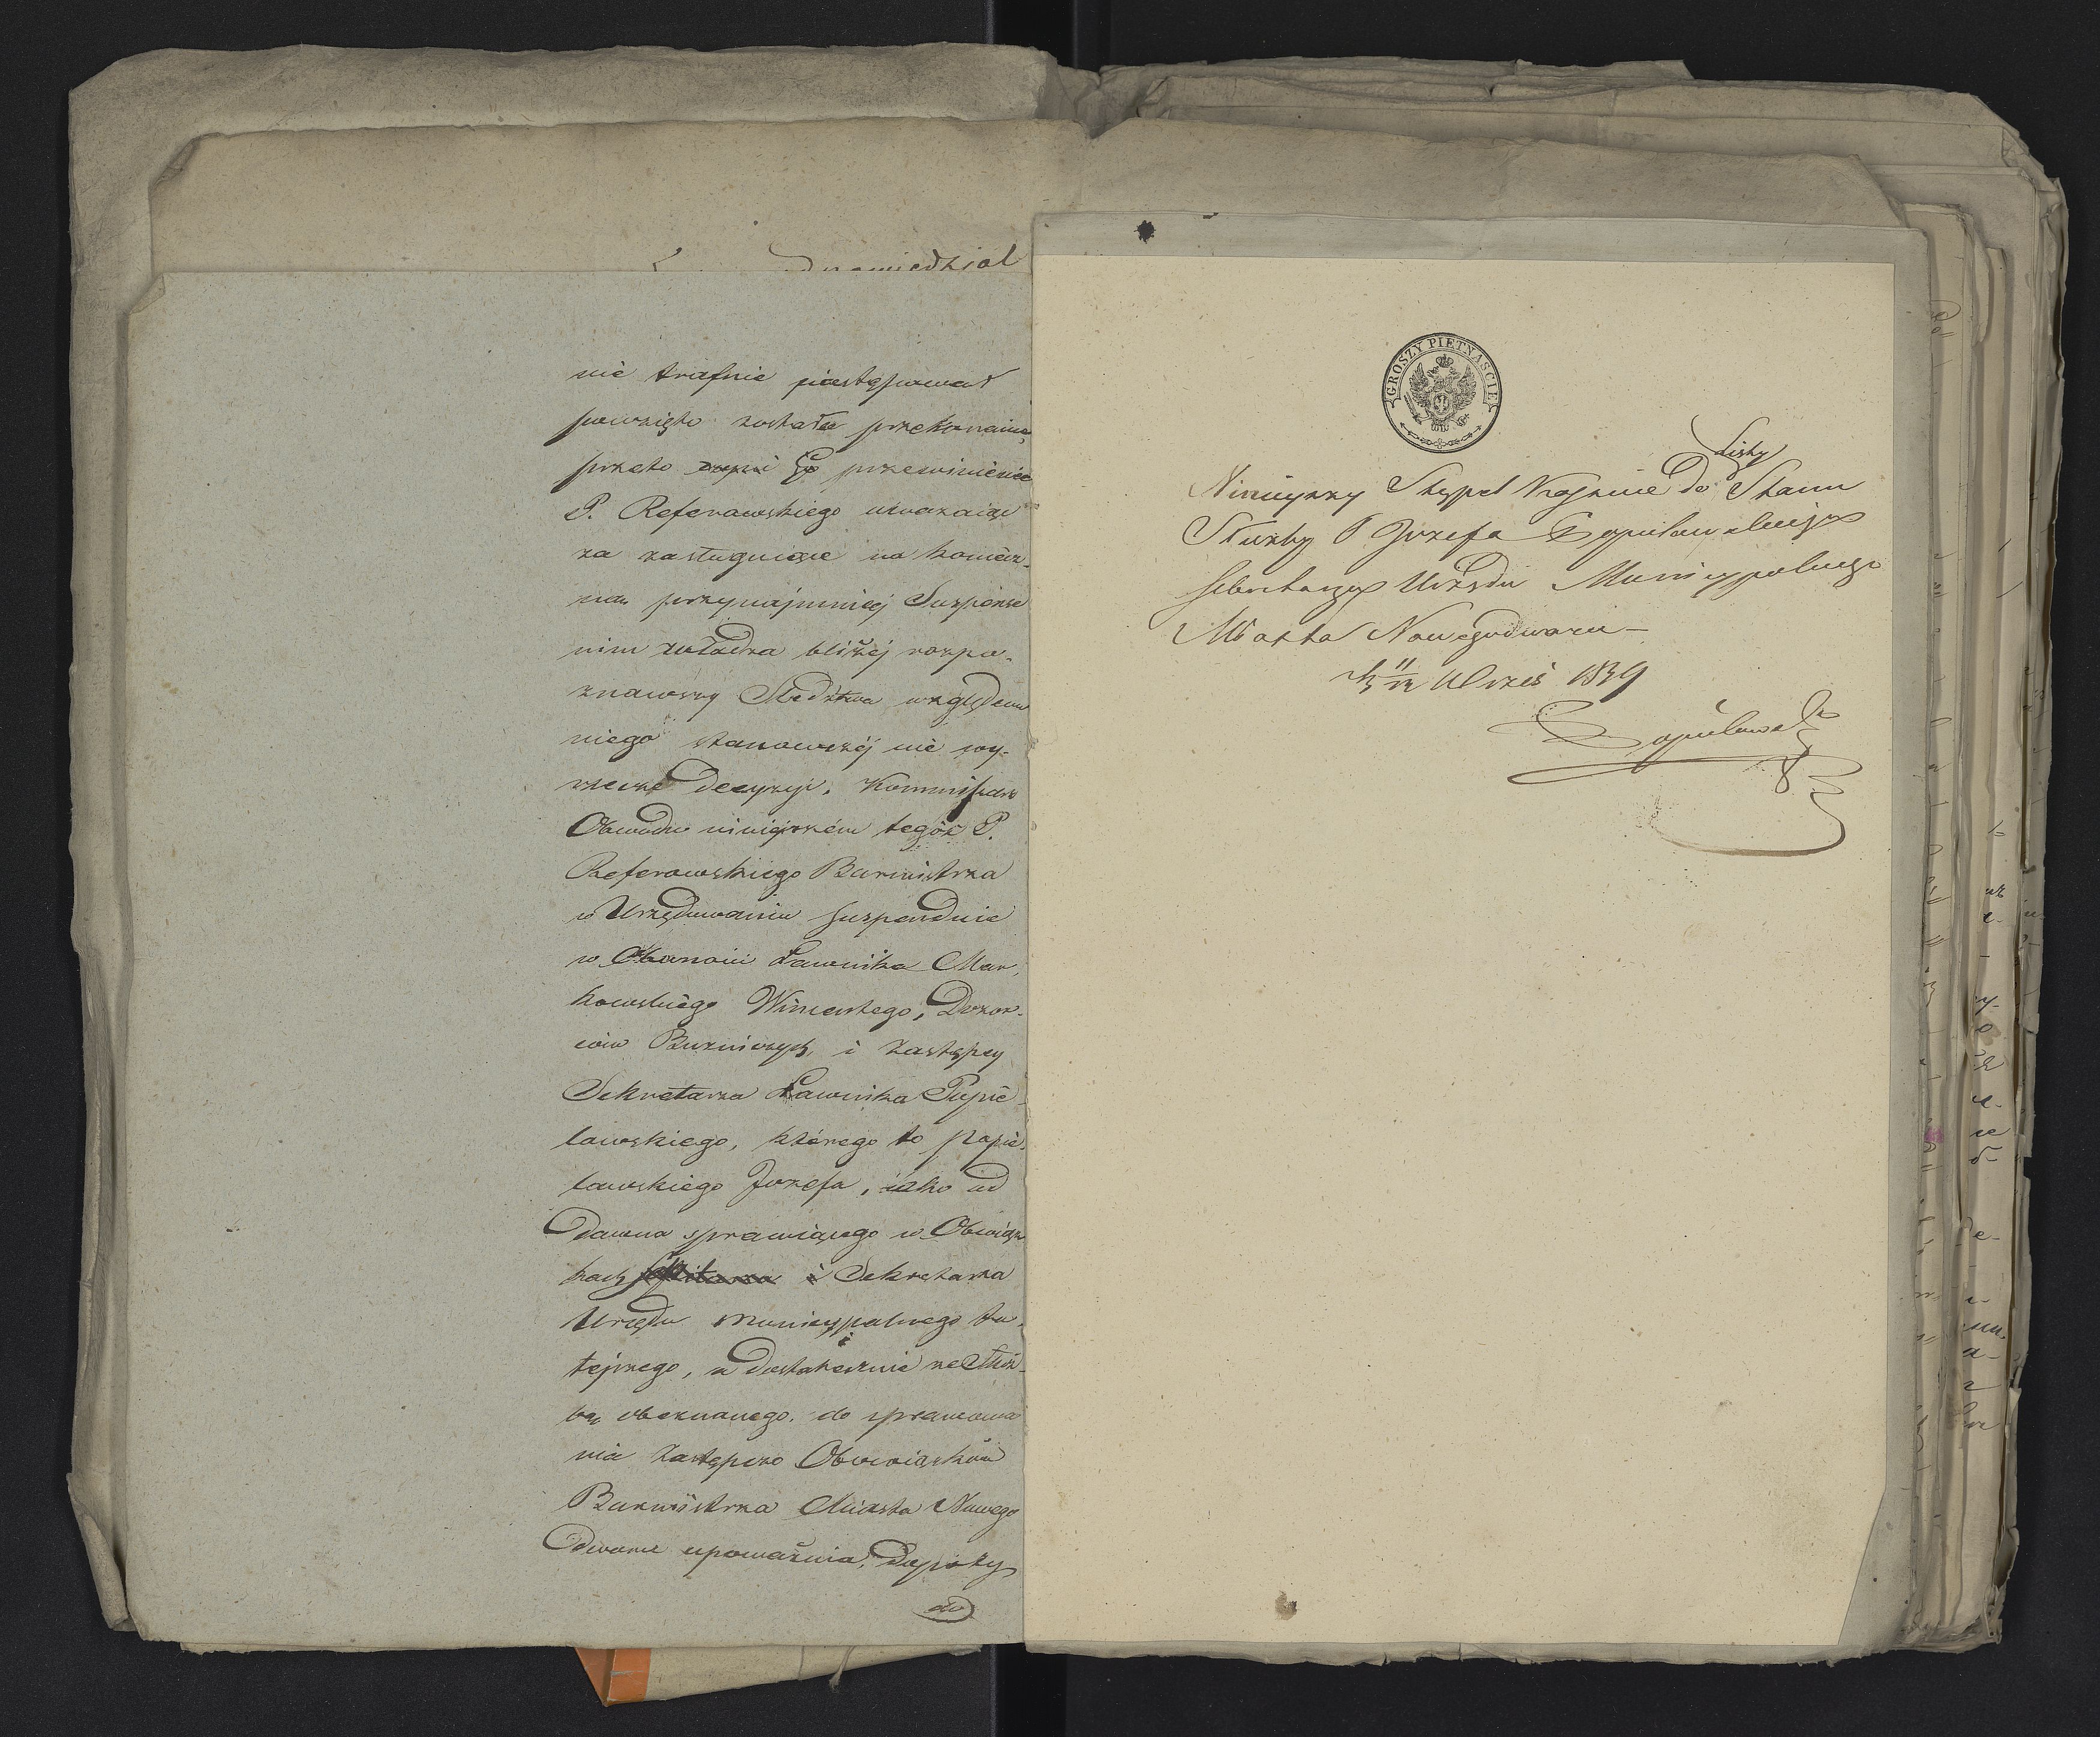 dpowiedział
nie trafnie postępował
powzięte zostało przekonanie,
przeto przewinienie
P. Referowskiego uważaiąc
za zasługuiące na koniecz-
ną przynajmniej Suspensę
nim władza bliżej rozpo-
znawszy Śledztwa względem
niego stanowczej nie wy-
rzecze Decyzyi, Kommissarz
Obwodu niniejszém tegoż P.
Referowskiego Burmistrza
w Urzędowaniu suspenduie
w Ławnika Mar-
kowskiego Dozor-
ców Bużniczych, i Zastępcy
Sekretarza Ławnika Popie-
lawskiego, którego to Popie-
lawskiego Jozefa, iako od
Dawna sprawuiącego w Obowiąz-
kach i Sekretarza
Urzędu Municypalnego tu-
tejszego, i dostatecznie ze Służ-
bą obeznanego, do sprawowa
nia Zastępczo Obowiązków
Burmistrza Miasta Nowego
Dworu upoważnia, dopóky
do
GROSZY PIETNAŚCIE
Listy
Niniejszy Stępel Kassuie do Stanu
Służby P Jozefa Popielawskiego
Sekretarza Urzędu Municypalnego
Miasta Nowegodworu —
d. 11/12 Wrześ 1839
Popielawski